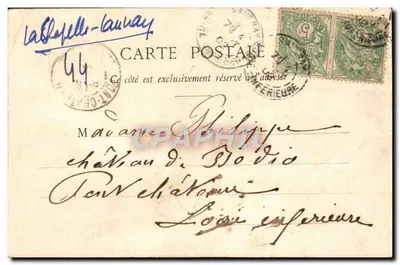 La Chapelle-Launay
CARTE POSTALE
44
Ce côté est exclusivement réservé à l'adresse
PONT-CHATEAU
INFERIEURE
Madame Philippe
château de Bodio
Pont château
Loire inferieure